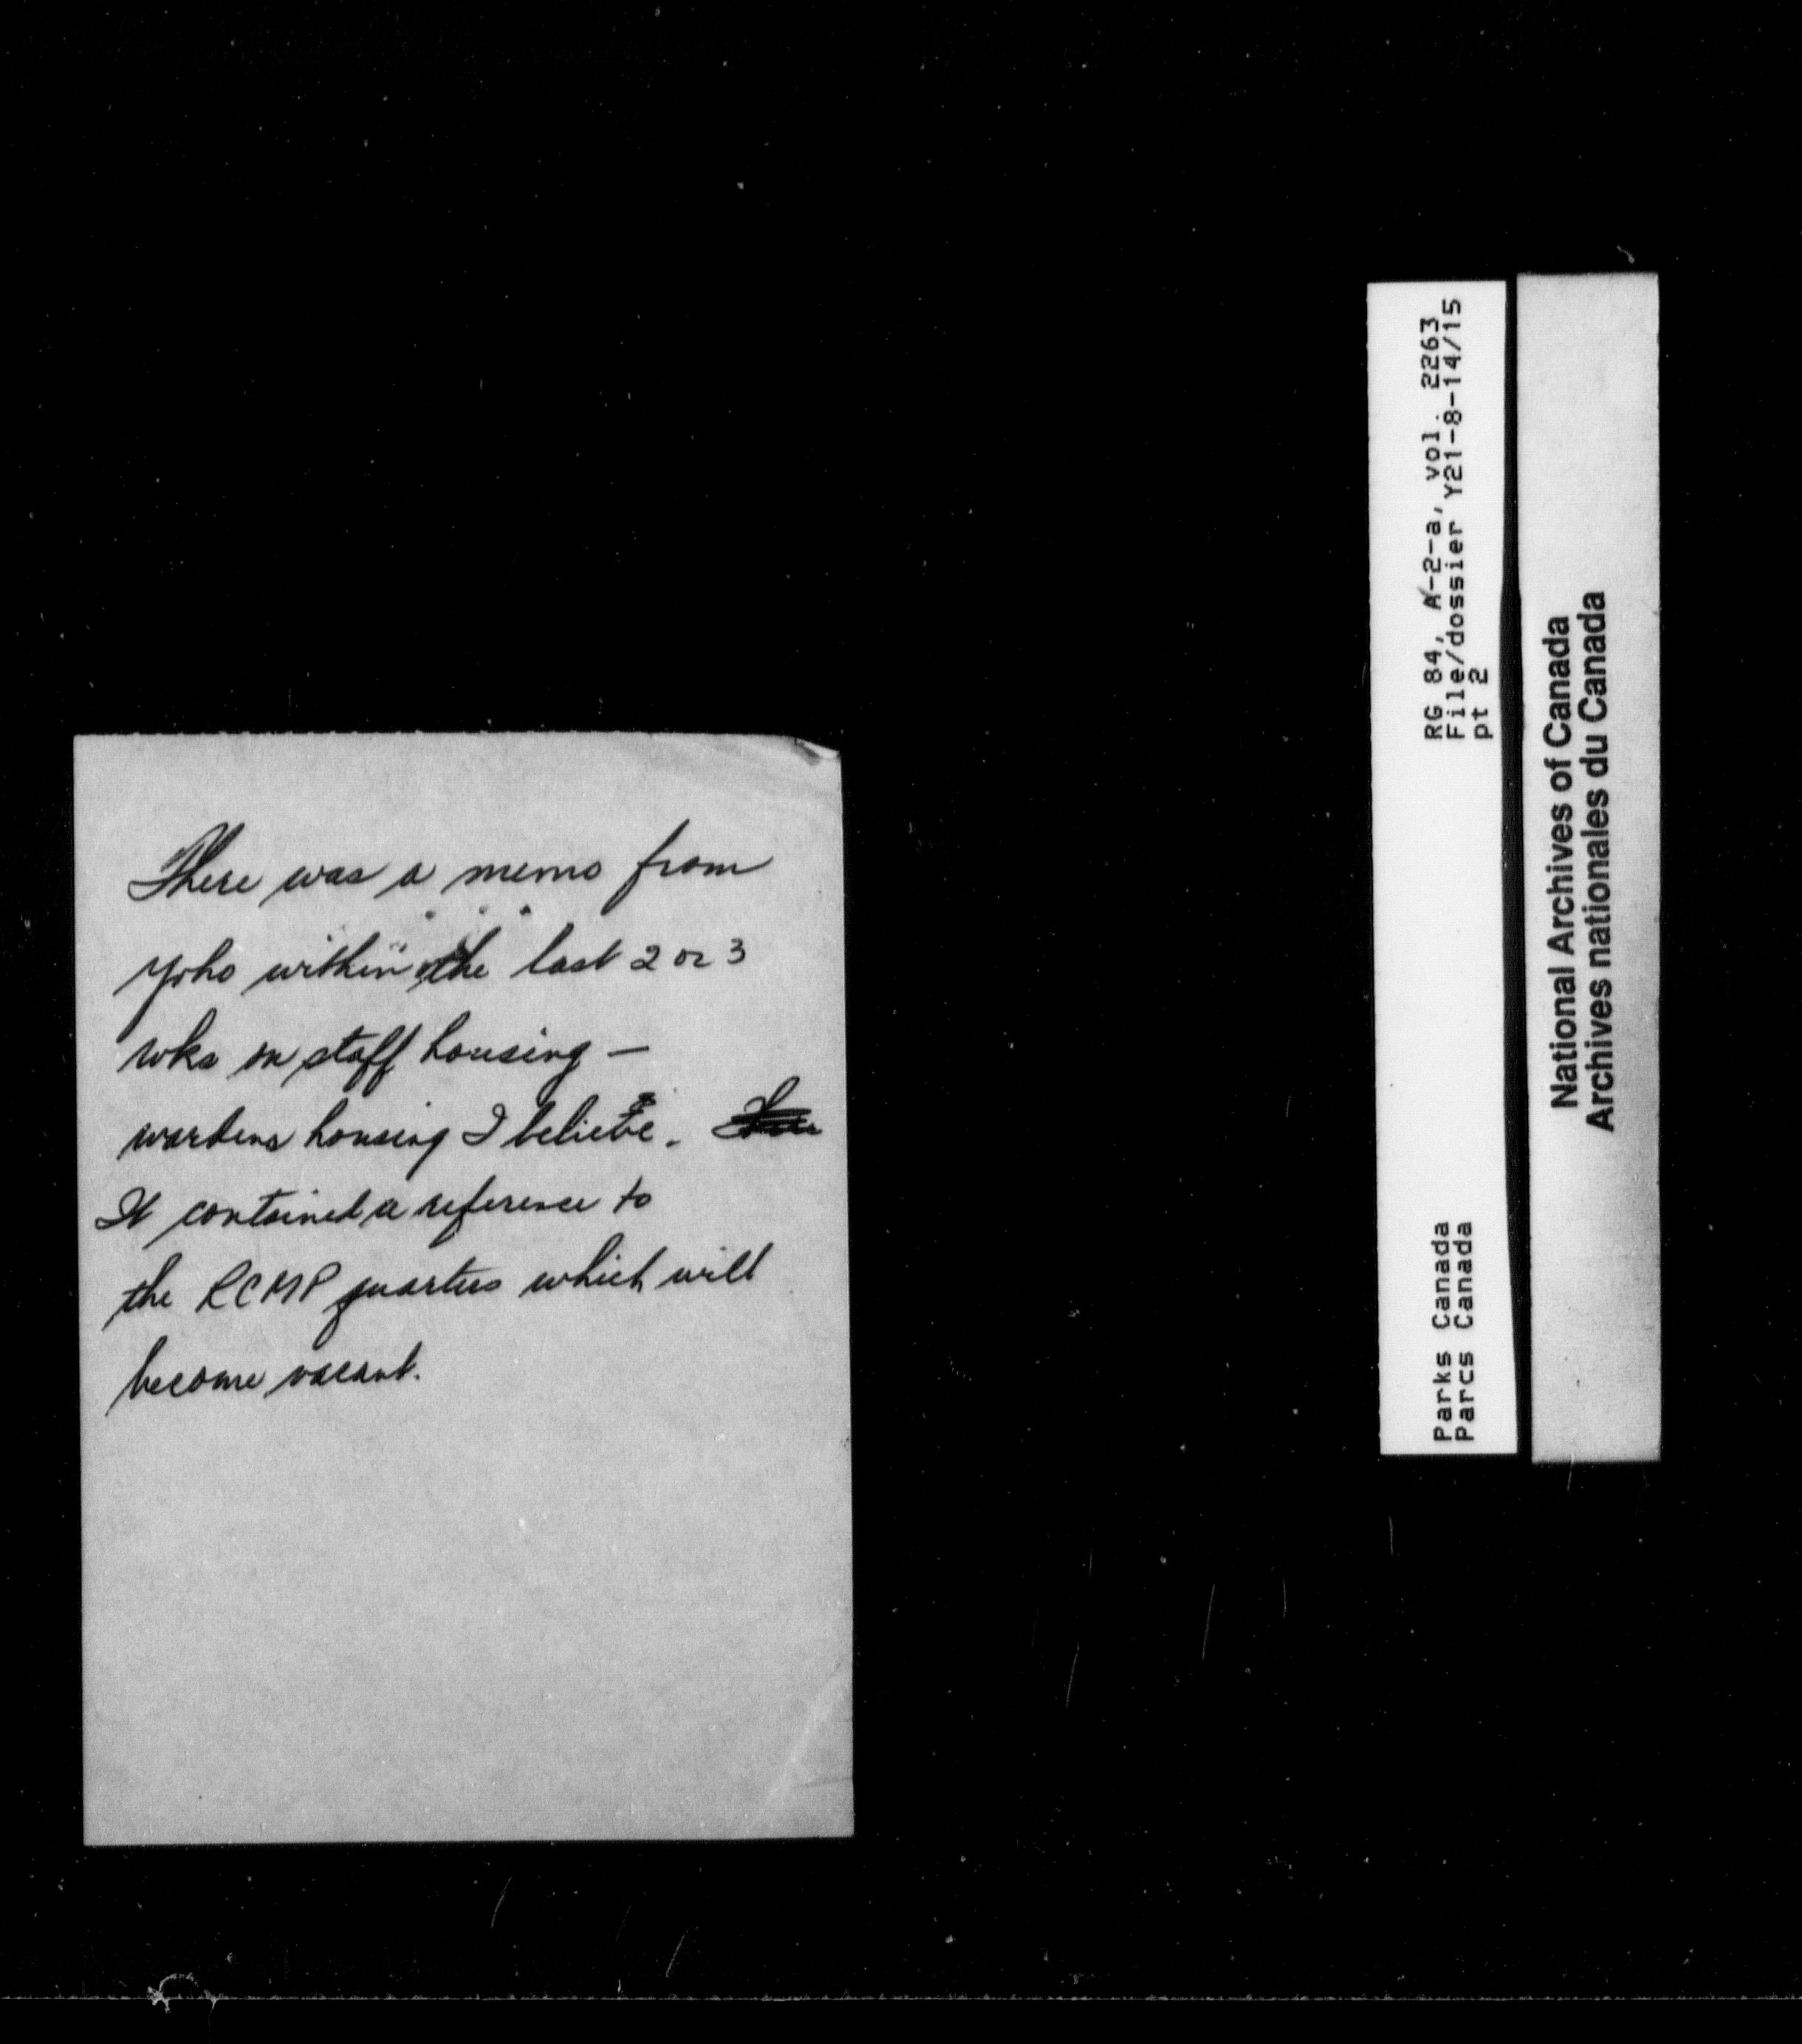 There was a memo from
Yoho within the last 2 or 3
wks on staff housing —
wardens housing I believe.
It contained a reference to
the RCMP quarters which will
become vacant.
RG 84, A-2-a, vol. 2263
File/dossier Y21-8-14/15
pt 2
Parks Canada
Parcs Canada
National Archives of Canada
Archives nationales du Canada